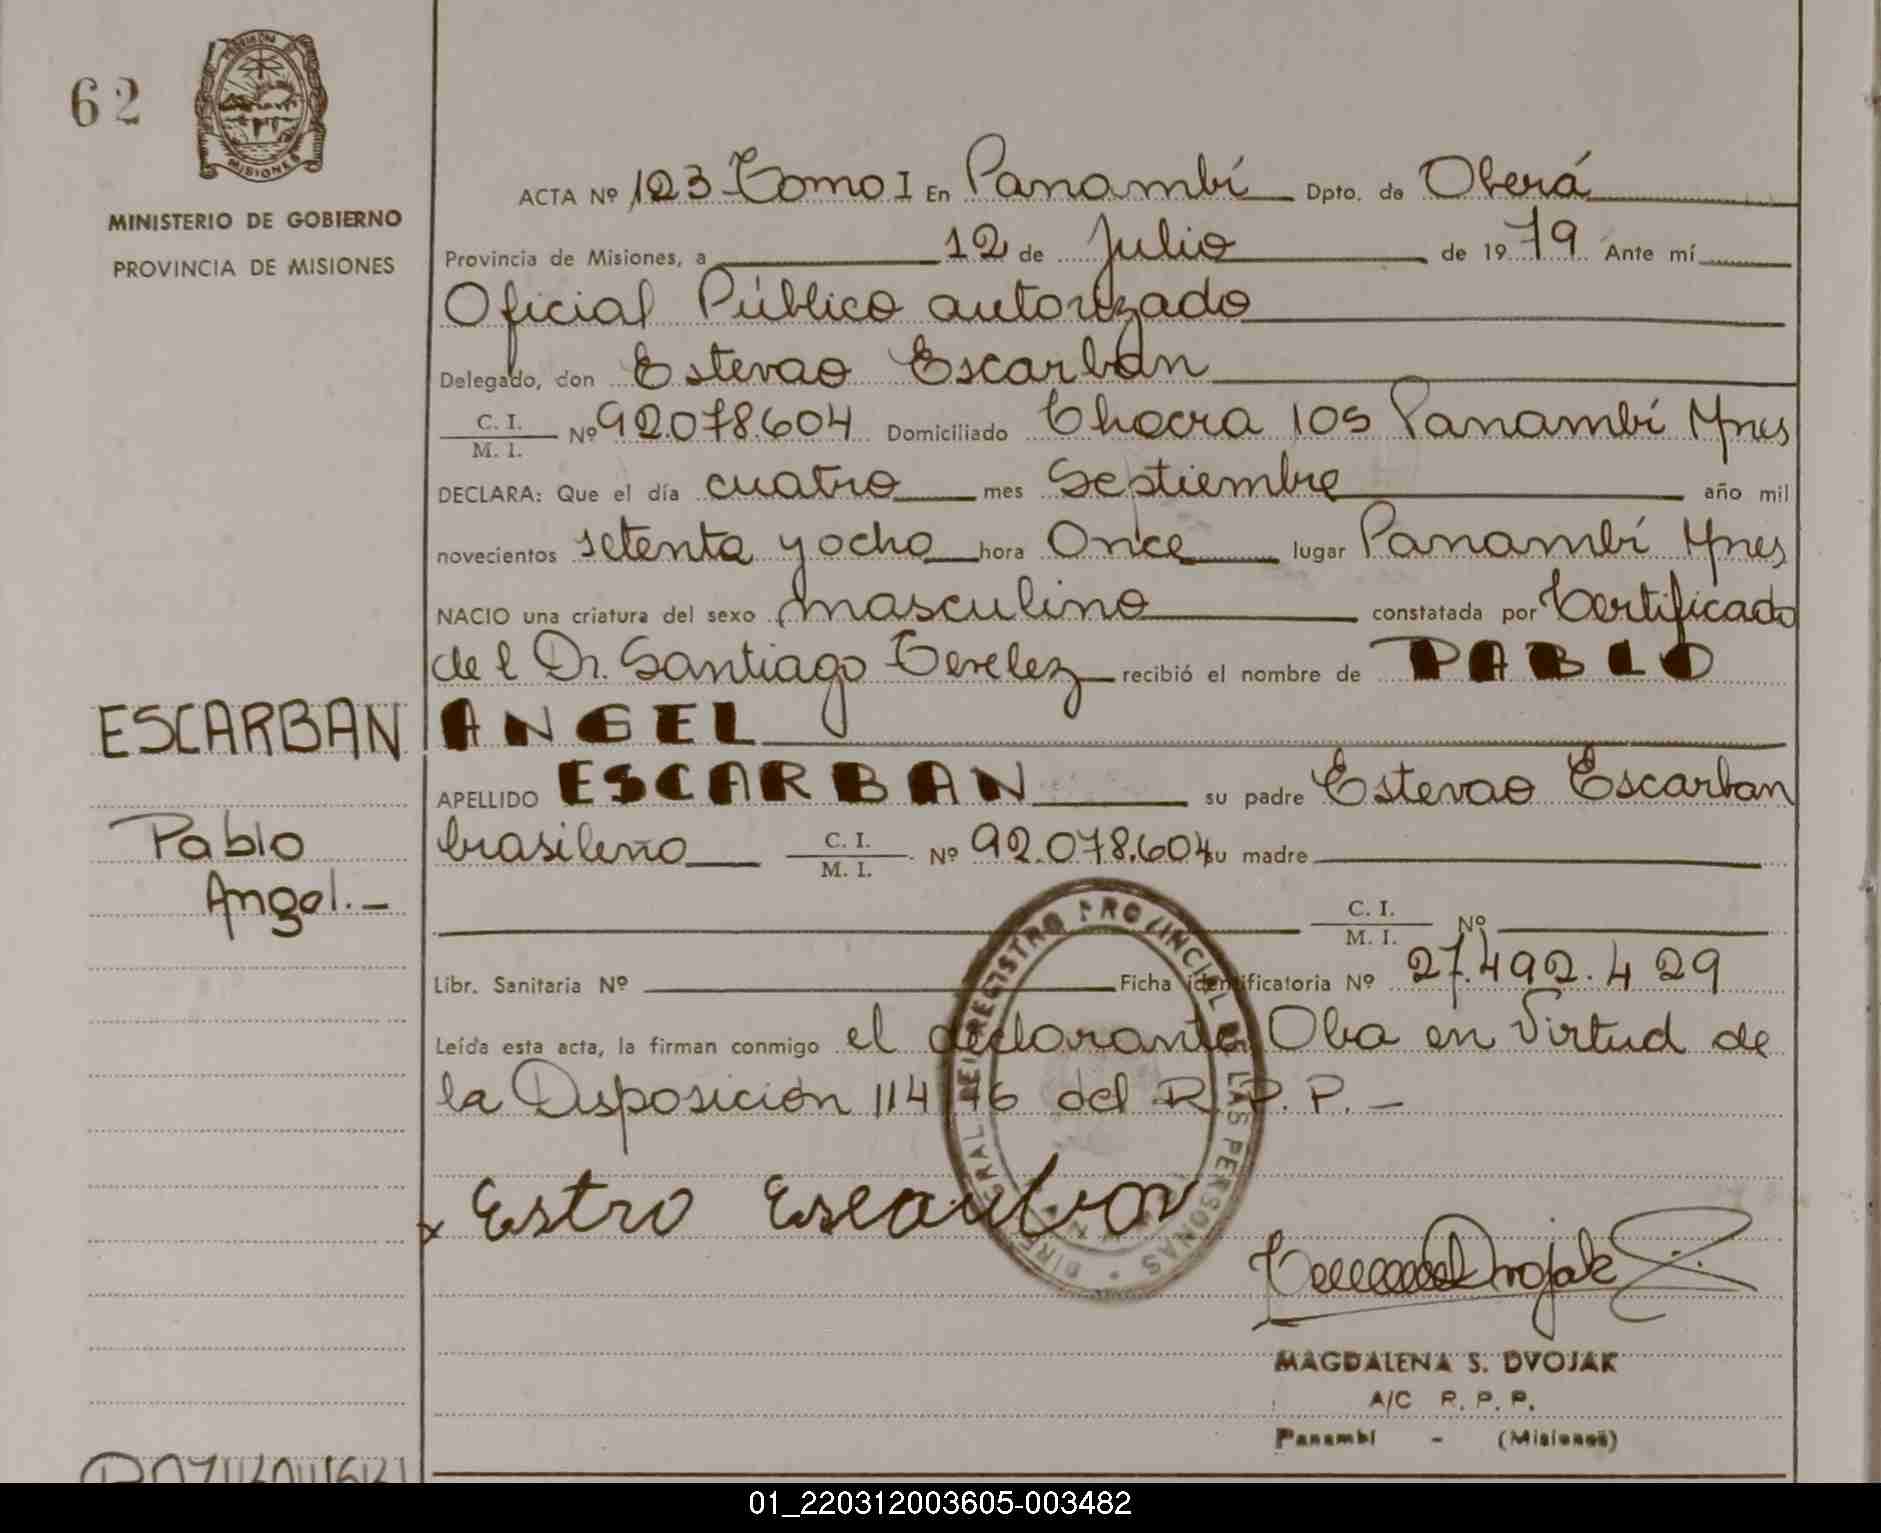 62
PROVINCIA DE
MISIONES
MINISTERIO DE GOBIERNO
PROVINCIA DE MISIONES
ACTA Nº 123 Tomo I En Panambí Dpto. de Oberá
Provincia de Misiones, a 12 de Julio de 1979 Ante mí
Oficial Público autorizado
Delegado, don Estevao Escarban
C. I. / M. I. Nº 92.078.604 Domiciliado Chacra 105 Panambí Mnes
DECLARA: Que el día cuatro mes Septiembre año mil
novecientos setenta y ocho hora Once lugar Panambí Mnes
NACIO una criatura del sexo masculino constatada por Certificado
del Dr. Santiago recibió el nombre de PABLO
ESCARBAN ANGEL
APELLIDO ESCARBAN su padre Estevao Escarban
Pablo brasileño C. I. / M. I. Nº 92.078.604 su madre
Angel.-
C. I. / M. I. Nº
Libr. Sanitaria Nº Ficha identificatoria Nº 27.492.429
Leída esta acta, la firman conmigo el declarante Oba en Virtud de
la Disposición 114 76 del R. P. P. -
DIRECCION GENERAL DEL REGISTRO PROVINCIAL DE LAS PERSONAS
x Estvo Escarban
Dvojak
MAGDALENA S. DVOJAK
A/C R. P. P.
Panambí - (Misiones)
01_220312003605-003482